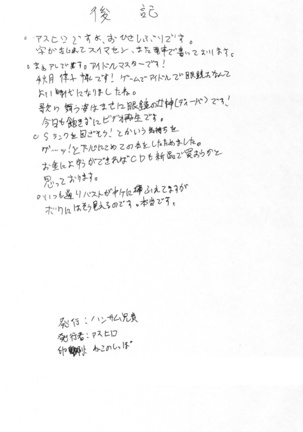 後記
・アスヒロです水、おひさしぶりです。
字がきたなくてスイマセン、また車中で書いております。
・まぁアレです。アイドルマスターです!
秋月律子嬢です!ゲームでアイドルで眼鏡おさげて
よい時代になりましたね。
歌って舞う姿はまさに眼鏡の女神(ディーバ)です!
今日も飽きずにビデオ再生です。
Sランクを目ざそう!とかいう気持ちを
グーッ!と下心にこめてこの本をしたためました。
お金によゆうができればCDも新品で買おうかと
思っております。
・いつも通りバストがヤケに増ふえてますが
ボクにはそう見えるのです。本当です。
発行:ハンサム兄貴
発行者:アスヒロ
印刷:ねこのしっぽ